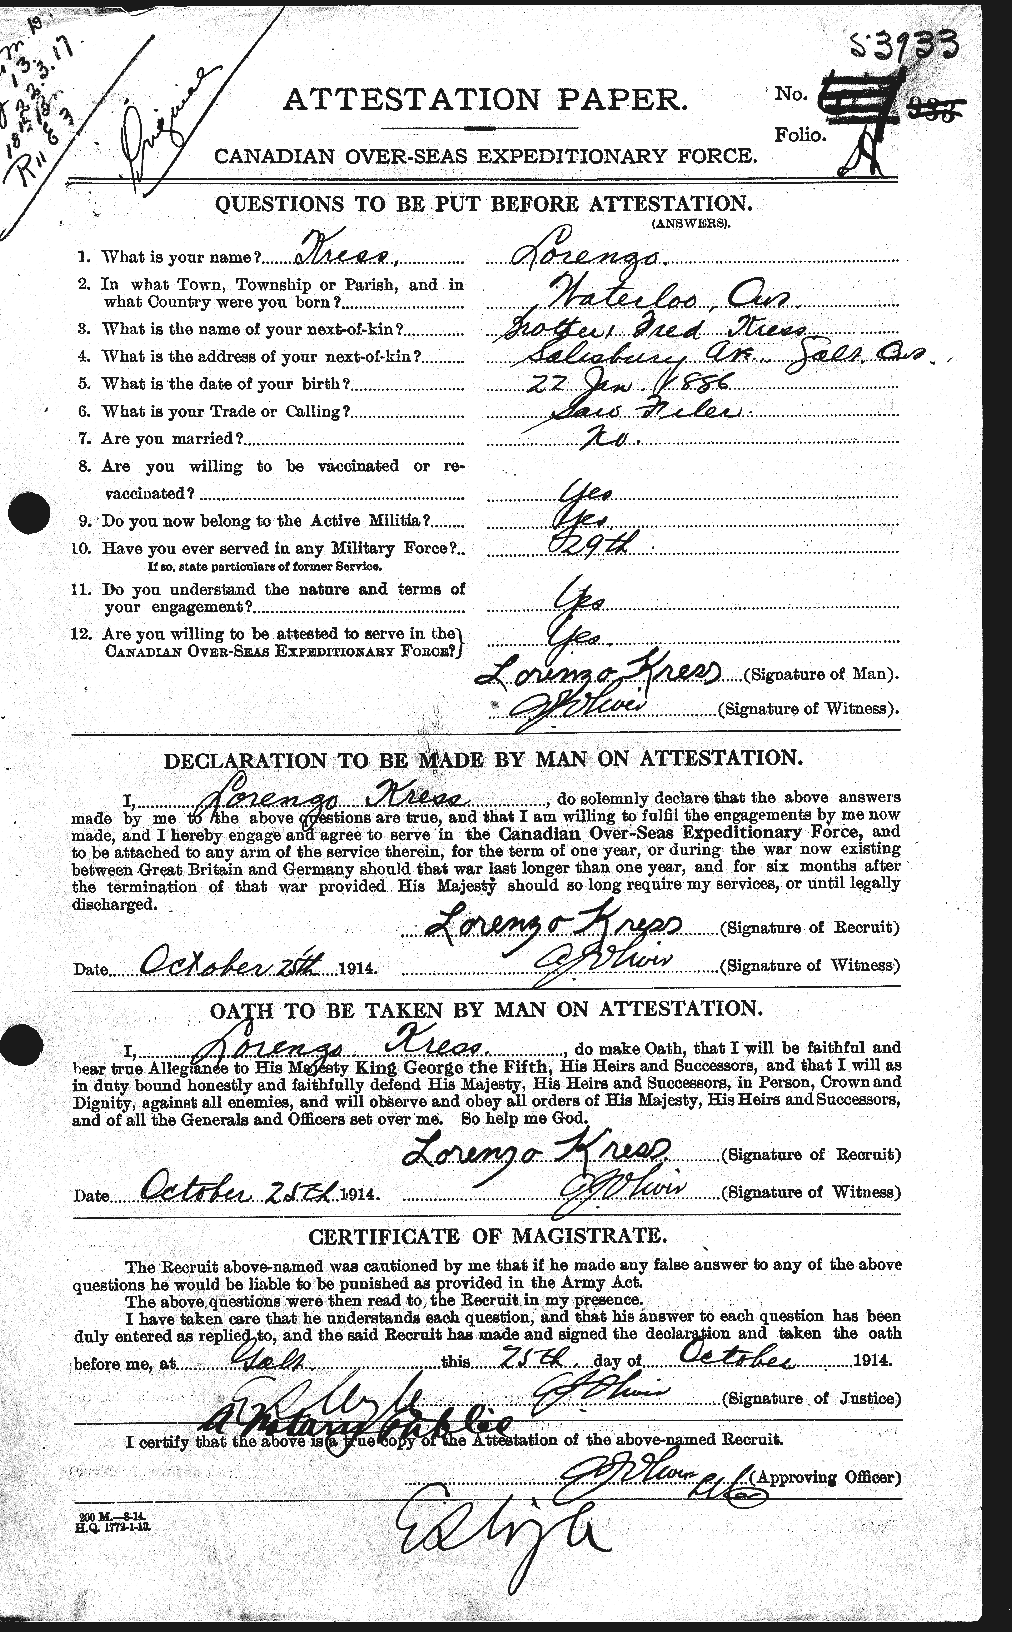 53933
Original
22.3.17
ATTESTATION PAPER.
No. 933
Folio.
CANADIAN OVER-SEAS EXPEDITIONARY FORCE.
QUESTIONS TO BE PUT BEFORE ATTESTATION.
(ANSWERS).
1. What is your name? Kress, Lorenzo.
2. In what Town, Township or Parish, and in
what Country were you born? Waterloo, Ont.
3. What is the name of your next-of-kin? Brother, Fred Kress
4. What is the address of your next-of-kin? Salisbury Ave. Galt. Ont.
5. What is the date of your birth? 22 Jan. 1886
6. What is your Trade or Calling? Saw Filer.
7. Are you married? No.
8. Are you willing to be vaccinated or re-
vaccinated? Yes
9. Do you now belong to the Active Militia? Yes
10. Have you ever served in any Military Force? 29th
If so, state particulars of former Service.
11. Do you understand the nature and terms of
your engagement? Yes
12. Are you willing to be attested to serve in the
CANADIAN OVER-SEAS EXPEDITIONARY FORCE? Yes.
Lorenzo Kress (Signature of Man).
(Signature of Witness).
DECLARATION TO BE MADE BY MAN ON ATTESTATION.
I, Lorenzo Kress, do solemnly declare that the above answers
made by me to the above questions are true, and that I am willing to fulfil the engagements by me now
made, and I hereby engage and agree to serve in the Canadian Over-Seas Expeditionary Force, and
to be attached to any arm of the service therein, for the term of one year, or during the war now existing
between Great Britain and Germany should that war last longer than one year, and for six months after
the termination of that war provided His Majesty should so long require my services, or until legally
discharged.
Lorenzo Kress (Signature of Recruit)
Date October 25th 1914. (Signature of Witness)
OATH TO BE TAKEN BY MAN ON ATTESTATION.
I, Lorenzo Kress, do make Oath, that I will be faithful and
bear true Allegiance to His Majesty King George the Fifth, His Heirs and Successors, and that I will as
in duty bound honestly and faithfully defend His Majesty, His Heirs and Successors, in Person, Crown and
Dignity, against all enemies, and will observe and obey all orders of His Majesty, His Heirs and Successors,
and of all the Generals and Officers set over me. So help me God.
Lorenzo Kress (Signature of Recruit)
Date October 25th 1914. (Signature of Witness)
CERTIFICATE OF MAGISTRATE.
The Recruit above-named was cautioned by me that if he made any false answer to any of the above
questions he would be liable to be punished as provided in the Army Act.
The above questions were then read to the Recruit in my presence.
I have taken care that he understands each question, and that his answer to each question has been
duly entered as replied to, and the said Recruit has made and signed the declaration and taken the oath
before me, at Galt this 25th day of October 1914.
(Signature of Justice)
A Notary Public
I certify that the above is a true copy of the Attestation of the above-named Recruit.
(Approving Officer)
200 M.—8-14.
H.Q. 1772-1-13.